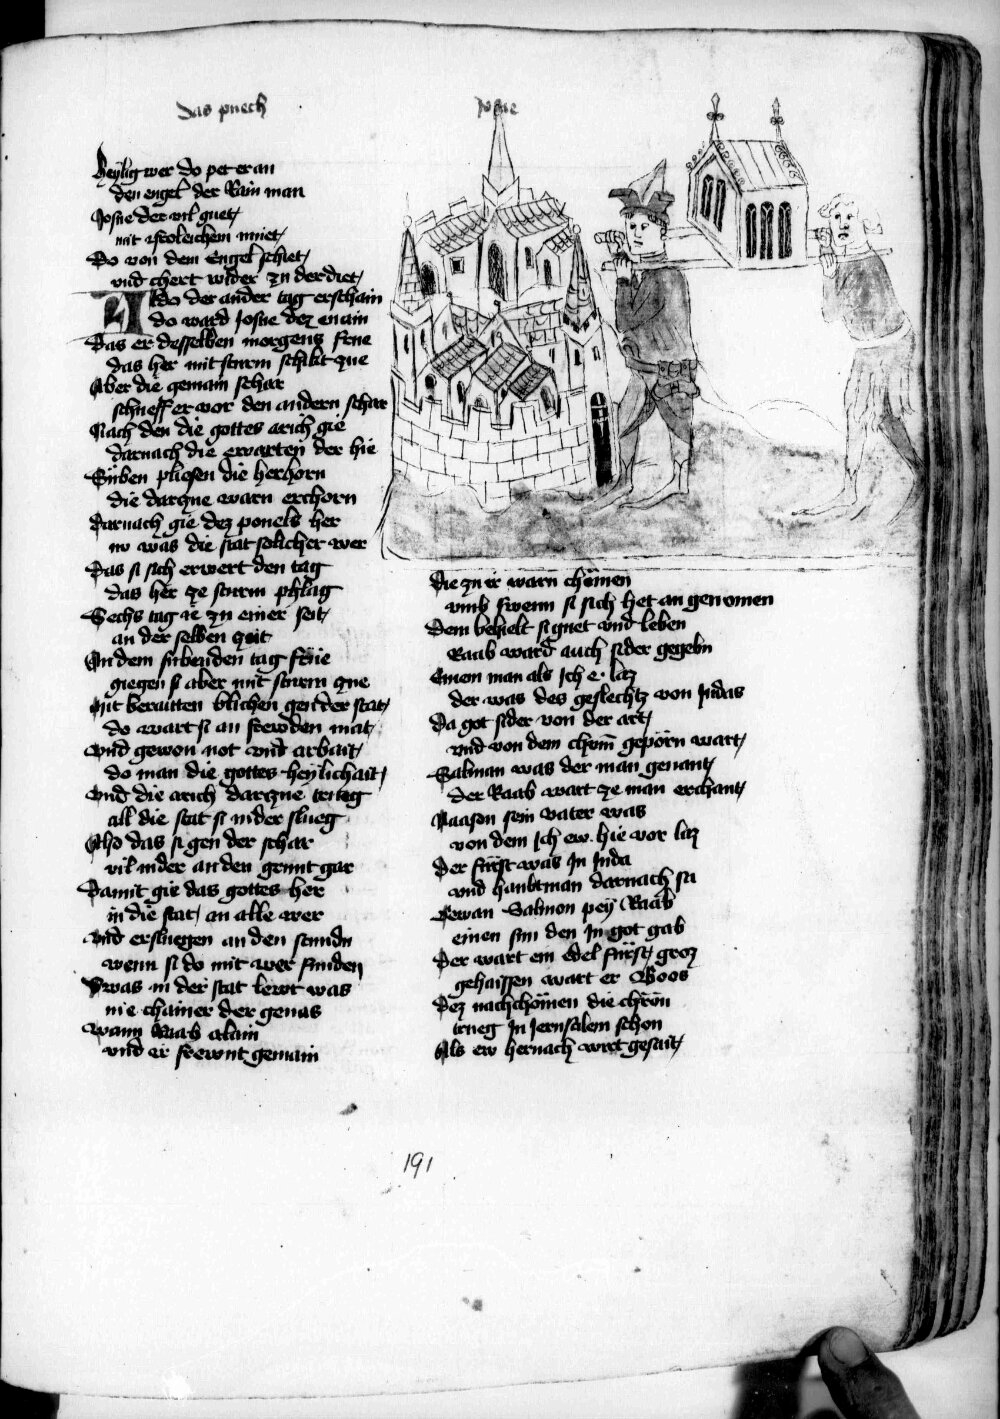 Das puech
Josue
Heylig wer do pet er an
den engel der Rain man
Josue der vil guet
mit froleichem muet
Do von dem Engel schiet
vnd chert wider zu der diet
Also der ander tag erschain
do ward Josue dez enain
Das er desselben morgens frue
das her mit sturm schikt zue
Aber die gemain schar
schueff er vor den andern schar
Nach den die gottes arich gie
darnach die ewarten der hie
Siben pliesen die herhorn
die darzue warn erchorn
Darnach gie dez pouels her
nv was die stat solicher wer
Das si sich erwert den tag
das her ze sturm phlag
Sechs tag ie zu einer seit
an der selben zeit
An dem sibenden tag frue
giegen si aber mit sturm zue
Mit beraitten blichen gen der stat
do wart si an frewden mat
vnd gewon not vnd arbait
do man die gottes heylichait
vnd die arich darzue trueg
all die stat si nider slueg
Also das si gen der schar
vil nider an den grunt gar
Damit gie das gottes her
in die stat an alle wer
vnd ersluegen an den stundn
wenn si do mit wer funden
Swas in der stat lewt was
nie chainer der genas
Wann Raab alain
vnd ir frewnt gemain
die zu ir warn chömen
vmb swenn si sich het an genomen
Dem behielt si guet vnd leben
Raab ward auch sider gegebn
Einem man als Ich e laz
der was des geslechtz von Judas
Da got sider von der art
vnd von dem chom gepörn wart
Salman was der man genant
der Raab wart ze man erchant
Naason sein vater was
von dem Ich ew hie vor laz
Der fürst was In Juda
vnd haubtman darnach sa
Gewan Salmon pey Raab
einen sun den Im got gab
Der wart ein edel fürst groz
gehaissen wart er Boos
Dez nachchömen die chron
trueg In Jerusalem schon
Als ew hernach wirt gesait
191